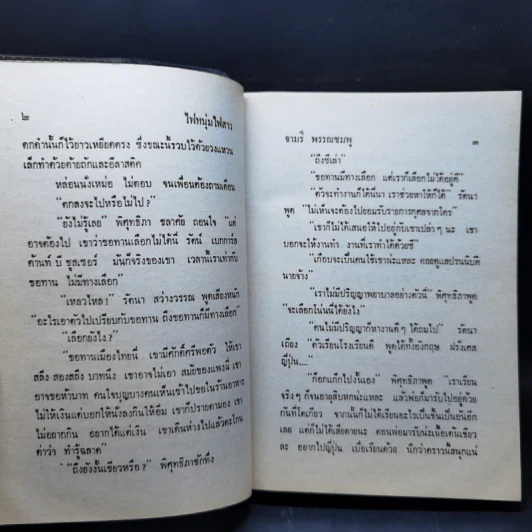 ๒ ไฟหนุ่มไฟสาว
ดกดำนั้นก็ไว้ยาวเหยียดตรง ซึ่งขณะนี้รวบไว้ด้วยวงแหวน
เล็กทำด้วยด้ายถักและอีลาสติค
หล่อนนั่งเหม่อ ไม่ตอบ จนเพื่อนต้องถามเตือน
"ตกลงจะไปหรือไม่ไป?"
"ยังไม่รู้เลย" พิศุทธิภา ชลาศัย ถอนใจ "แต่
อาจต้องไป เขาว่าขอทานเลือกไม่ได้นี่ รัตน์ เบกการ์ส
ค้านท์ บี ชูสเซอร์ มันก็จริงของเขา เวลานี้เราเท่ากับ
ขอทาน ไม่มีทางเลือก"
"เหลวไหล!" รัตนา สว่างวรรณ พูดเสียงหนัก
"อะไรเอาตัวไปเปรียบกับขอทาน ถึงขอทานก็มีทางเลือก"
"เลือกยังไง?"
"ขอทานเมืองไทยนี่ เขามีศักดิ์ศรีพอตัว ให้เขา
สลึง สองสลึง บาทนึง เขาอาจไม่เอา สมัยของแพงนี่ เขา
อาจขอห้าบาท คนใจบุญบางคนเห็นเข้าไปขอในร้านอาหาร
ไม่ให้เงินแต่บอกให้นั่งลงกินให้อิ่ม เขาก็ปรายตามอง เขา
ไม่อยากกิน อยากได้แต่เงิน เขาเดินห่างไปแล้วตะโกน
ด่าว่า ทำรู้ฉลาด"
"ถึงยังงั้นเชียวหรือ?" พิศุทธิภาชักทึ่ง
จามรี พรรณชมพู ๓
"ถึงซีเล่า"
"ขอทานมีทางเลือก แต่เราก็เลือกไม่ได้อยู่ดี"
"ตัวจะทำงานก็ได้นี่นา เราช่วยหาให้ก็ได้" รัตนา
พูด "ไม่เห็นจะต้องไปยอมรับรายการกุศลจากใคร"
"เขาก็ไม่ได้เสนอให้ไปอยู่กับเขาเปล่าๆ นะ เขา
บอกจะให้งานทำ งานที่เราทำได้ด้วยซี"
"เกือบจะเป็นคนใช้เขาน่ะแหละ คอยดูแลปรนนิบัติ
นายจ้าง"
"เราไม่มีปริญญาพยาบาลอย่างตัวนี่" พิศุทธิภาพูด
"จะเลือกโน่นนี่ได้ยังไง"
"คนไม่มีปริญญาก็หางานดีๆ ได้ถมไป" รัตนา
เถียง "ตัวเรียนโรงเรียนดี พูดได้ทั้งอังกฤษ ฝรั่งเศส
ญี่ปุ่น...."
"ก็อกแก็กไปงั้นเอง" พิศุทธิภาพูด "เราเรียน
จริงๆ ก็จนอายุสิบหกน่ะแหละ แล้วพ่อก็มารับไปอยู่ด้วย
กันที่รีดเกียว จากนั้นก็ไม่ได้เรียนอะไรเป็นชิ้นเป็นอันอีก
เลย แต่ก็ไม่ได้เสียดายนะ ตอนพ่อมารับน่ะเนื้อเต้นเชียว
ละ อยากไปญี่ปุ่น เบื่อเรียนด้วย นึกว่าคราวนี้สนุกแน่